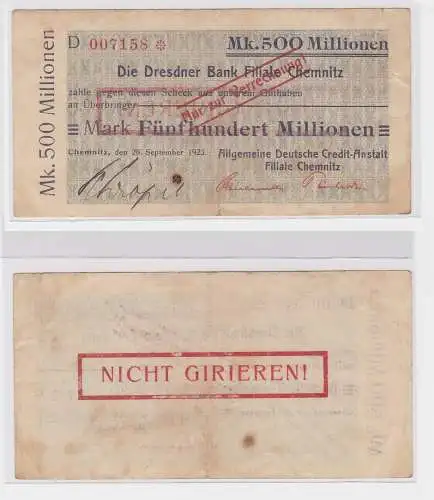 Mk. 500 Millionen
D 007158 ※
Mk. 500 Millionen
Die Dresdner Bank Filiale Chemnitz
zahle gegen diesen Scheck aus unserem Guthaben
an Überbringer
Nur zur Verrechnung!
Mark Fünfhundert Millionen
Chemnitz, den 20. September 1923.
Allgemeine Deutsche Credit-Anstalt
Filiale Chemnitz.
NICHT GIRIEREN!
Mk. 500 Millionen